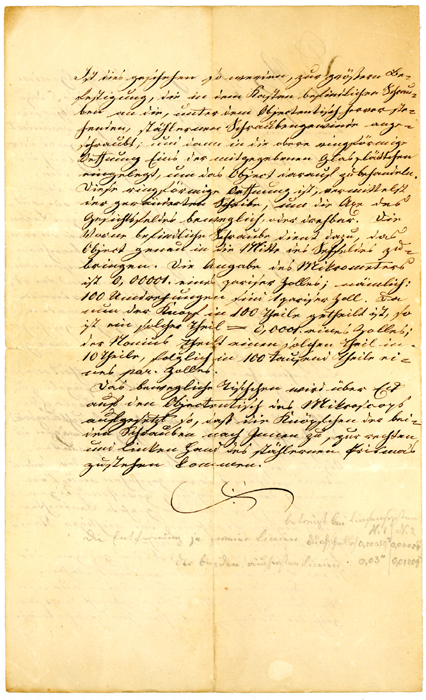 Ist dies geschehen so werden, zur größern Be-
festigung, die in dem Kasten befindlichen Schrau-
ben an die, unter dem Objectentisch hervor ste-
henden, stählernen Schraubengewinde ange-
schraubt, und dann in die obere ringförmige
Oeffnung Eins der mitgegebenen Glasplättchen
eingelegt, um das Object darauf zu behandeln.
Diese ringförmige Oeffnung ist, vermittelst
der geränderten Scheibe, um die Axe des
Gesichtsfeldes beweglich oder drehbar. Die
vorne befindliche Schraube dient dazu, das
Object genau in die Mitte des Sehfeldes zu
bringen. Die Angabe des Mikrometers
ist 0,00001 eines pariser Zolles; nämlich:
100 Umdrehungen sind 1 pariser Zoll. Da
nun der Knopf in 100 Theile getheilt ist, so
ist ein solcher Theil = 0,0001 eines Zolles;
der Nonius theilt einen solchen Theil in
10 Theile, folglich in 100 tausend Theile ei-
nes par. Zolles.
Das bewegliche Tischchen wird über Eck
auf den Objectentisch des Mikroscops
aufgesetzt so, daß die Knöpfchen der bei-
den Schrauben nach Innen zu, zur rechten
und linken Hand des stählernen Prismas
zustehen kommen.
beträgt bei
N. 1 N. 2
Die Entfernung je zweier Linien
der beiden äußersten Linien 0,03"